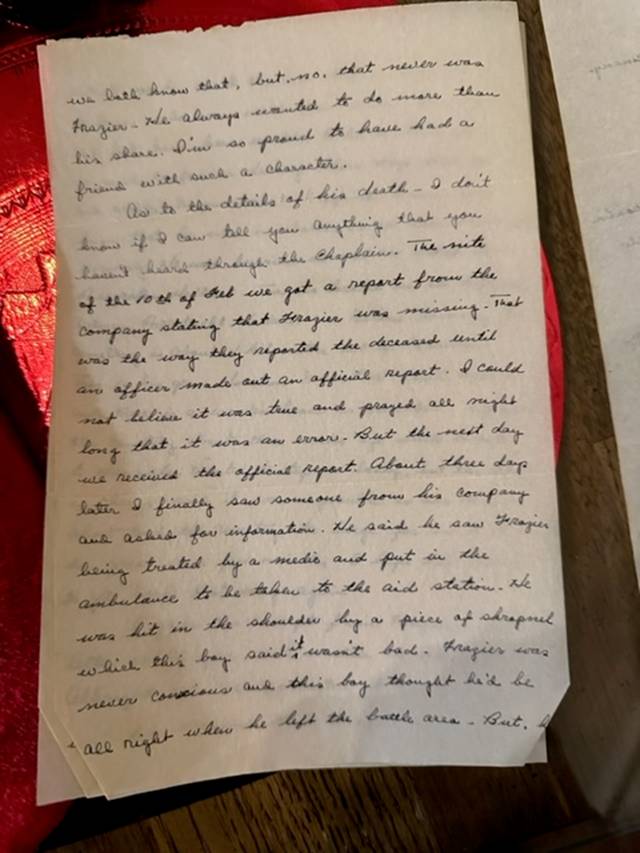 we both know that, but, no, that never was
Frazier - He always wanted to do more than
his share. I'm so proud to have had a
friend with such a character.
As to the details of his death - I don't
know if I can tell you anything that you
haven't heard through the Chaplain. The nite
of the 10th of Feb we got a report from the
company stating that Frazier was missing. That
was the way they reported the deceased until
an officer made out an official report. I could
not believe it was true and prayed all night
long that it was an error. But the next day
we received the official report. About three days
later I finally saw someone from his company
and asked for information. He said he saw Frazier
being treated by a medic and put in the
ambulance to be taken to the aid station. He
was hit in the shoulder by a piece of shrapnel
which this boy said it wasn't bad. Frazier was
never conscious and this boy thought he'd be
all right when he left the battle area - But,